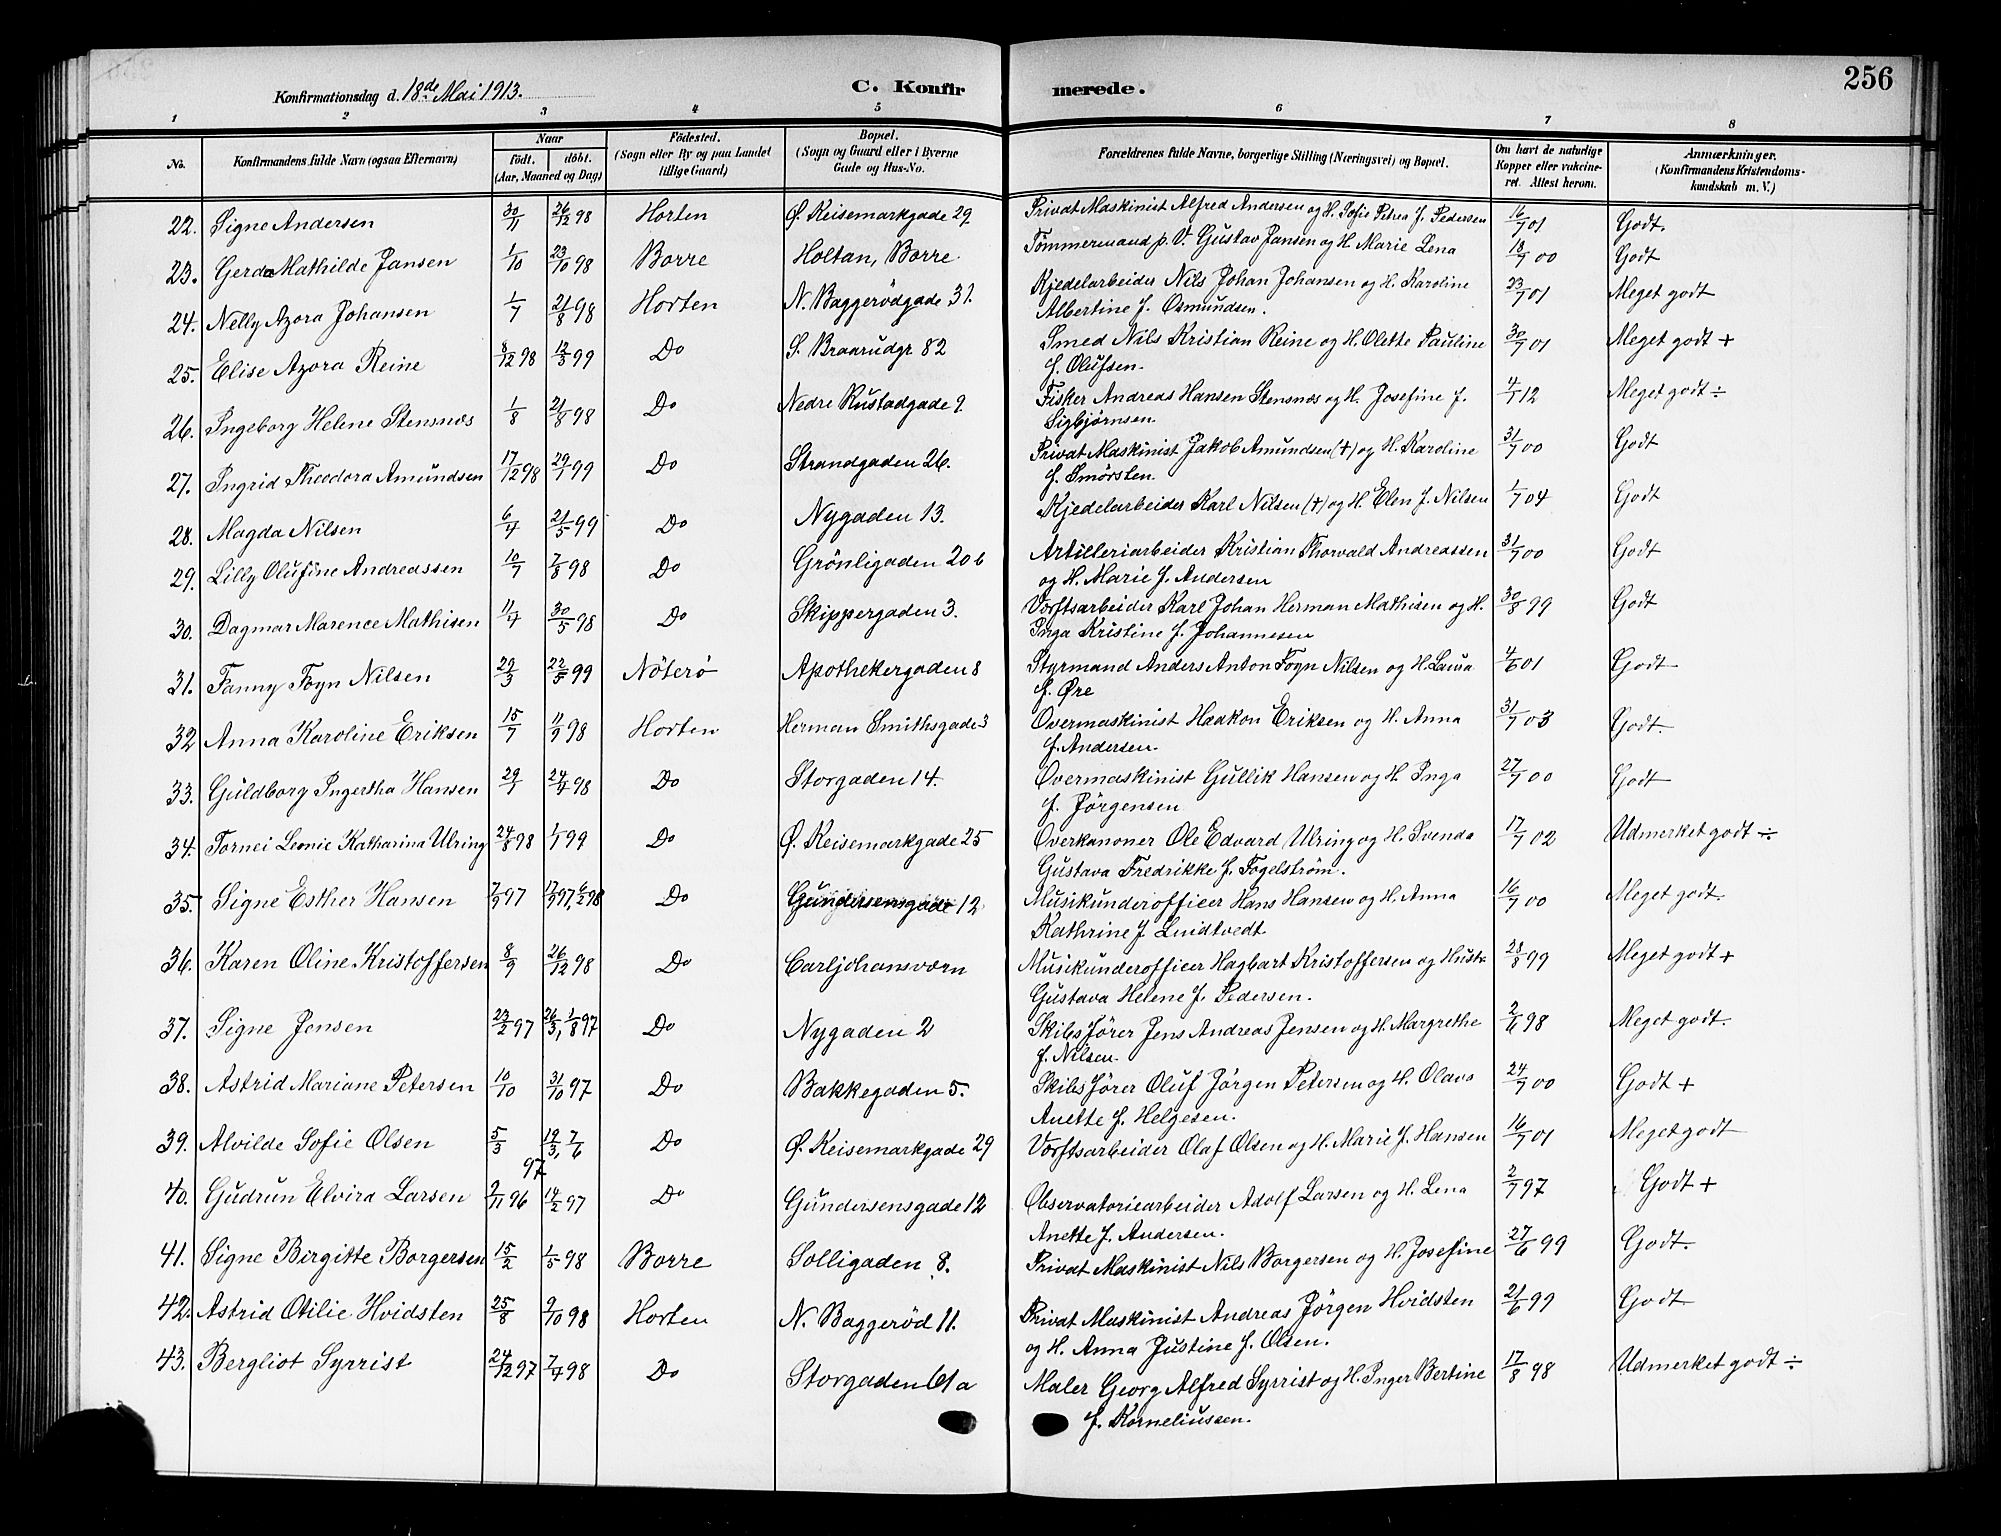 256
Konfirmationsdag d. 18de Mai 1913.
C. Konfir merede.
1 2 3 4 5 6 7 8
No. Konfirmandens fulde Navn (ogsaa Efternavn) Naar födt. döbt. (Aar, Maaned og Dag) Födested. (Sogn eller By og paa Landet tillige Gaard) Bopæl. (Sogn og Gaard eller i Byerne Gade og Hus-No. Forældrenes fulde Navne, borgerlige Stilling (Næringsvei) og Bopæl. Om havt de naturlige Kopper eller vakcineret. Attest herom. Anmærkninger. (Konfirmandens Kristendomskundskab m. V.)
22. Signe Andersen 30/11 26/12 98 Horten Ø. Keisemarkgade 29 Privat Maskinist Alfred Andersen og H. Sofie Petrea f. Pedersen 16/7 01 Godt.
23. Gerda Mathilde Jansen 1/10 23/10 98 Borre Holtan, Borre. Tömmermand p. V. Gustav Jansen og H. Marie Lena 18/7 00 Godt
24. Nelly Azora Johansen 1/7 21/8 98 Horten N. Baggerödgade 31. Kjedelarbeider Nils Johan Johansen og H. Karoline 23/7 01 Meget godt
Albertine f. Osmundsen.
25. Elise Azora Reine 8/12 98 12/3 99 Do S. Braarudgr 82 Smed Nils Kristian Reine og H. Olette Pauline 30/7 01 Meget godt +
f. Olufsen.
26. Ingeborg Helene Stensnæs 1/8 21/8 98 Do Nedre Rustadgade 9. Fisker Andreas Hansen Stensnæs og H. Josefine f. 4/7 12 Meget godt ÷
Sigbjörnsen.
27. Ingrid Theodora Amundsen 17/12 98 29/1 99 Do Strandgaden 26. Privat Maskinist Jakob Amundsen (+) og H. Karoline 31/7 00 Godt
f. Smörsten.
28. Magda Nilsen 6/4 21/5 99 Do Nygaden 13. Kjedelarbeider Karl Nilsen (+) og H. Elen f. Nilsen 1/7 04 Godt
29. Lilly Olufine Andreassen 10/7 7/8 98 Do Grönligaden 20 b Artilleriarbeider Kristian Thorvald Andreassen 31/7 00 Godt
og H. Marie f. Andersen
30. Dagmar Marence Mathisen 11/4 30/5 98 Do Skippergaden 3. Værftsarbeider Karl Johan Herman Mathisen og H. 30/8 99 Godt
Inga Kristine f. Johannesen
31. Fanny Foyn Nilsen 29/3 22/5 99 Nöterö Apothekergaden 8 Styrmand Anders Anton Foyn Nilsen og H. Laura 4/6 01 Godt
f. Øre
32 Anna Karoline Eriksen 15/7 11/9 98 Horten Herman Smithsgade 3 Overmaskinist Haakon Eriksen og H. Anna 31/7 03 Godt.
f. Andersen.
33. Guldborg Ingertha Hansen 29/1 24/4 98 Do Storgaden 14. Overmaskinist Gullik Hansen og H. Inga 27/7 00 Godt
f. Jörgensen
34. Tornei Leonie Katharina Ulring 24/8 98 1/1 99 Do Ø. Keisemarkgade 25 Overkanoner Ole Edvard Ulring og H. Svenda 17/7 02 Udmerket godt ÷
Gustava Fredrikke f. Fogelström.
35. Signe Esther Hansen 7/9 97 17/9 97, 6/2 98 Do Gundersensgade 12 Musikunderofficer Hans Hansen og H. Anna 16/7 00 Meget godt.
Kathrine f. Lindtvedt
36. Karen Oline Kristoffersen 8/9 26/12 98 Do Carljohansværn Musikunderofficer Hagbart Kristoffersen og Hustr 28/8 99 Meget godt +
Gustava Helene f. Pedersen.
37. Signe Jensen 23/2 97 26/3, 1/8 97 Do Nygaden 2 Skibsförer Jens Andreas Jensen og H. Margrethe 2/6 98 Meget godt.
f. Nilsen.
38. Astrid Mariane Petersen 10/10 31/10 97 Do Bakkegaden 5. Skibsförer Oluf Jörgen Petersen og H. Olava 24/7 00 Godt +
Anette f. Helgesen.
39. Alvilde Sofie Olsen 5/3 19/3, 7/6 97 Do Ø. Keisemarkgade 29 Værftsarbeider Olaf Olsen og H. Marie f. Hansen 16/7 01 Meget godt
40. Gudrun Elvira Larsen 9/11 96 14/2 97 Do Gundersensgade 12 Observatoriearbeider Adolf Larsen og H. Lena 2/7 97 Godt +
Anette f. Andersen.
41. Signe Birgitte Borgersen 15/2 1/5 98 Borre Solligaden 8. Privat Maskinist Nils Borgersen og H. Josefine 27/6 99 Godt.
42. Astrid Otilie Hvidsten 25/8 9/10 98 Horten N. Baggeröd 11. Privat Maskinist Andreas Jörgen Hvidsten 21/6 99 Godt
og H. Anna Justine f. Olsen.
43. Bergliot Syrrist 24/12 97 7/4 98 Do Storgaden 61a Maler Georg Alfred Syrrist og H. Inger Bertine 17/8 98 Udmerket godt ÷
f. Korneliussen.